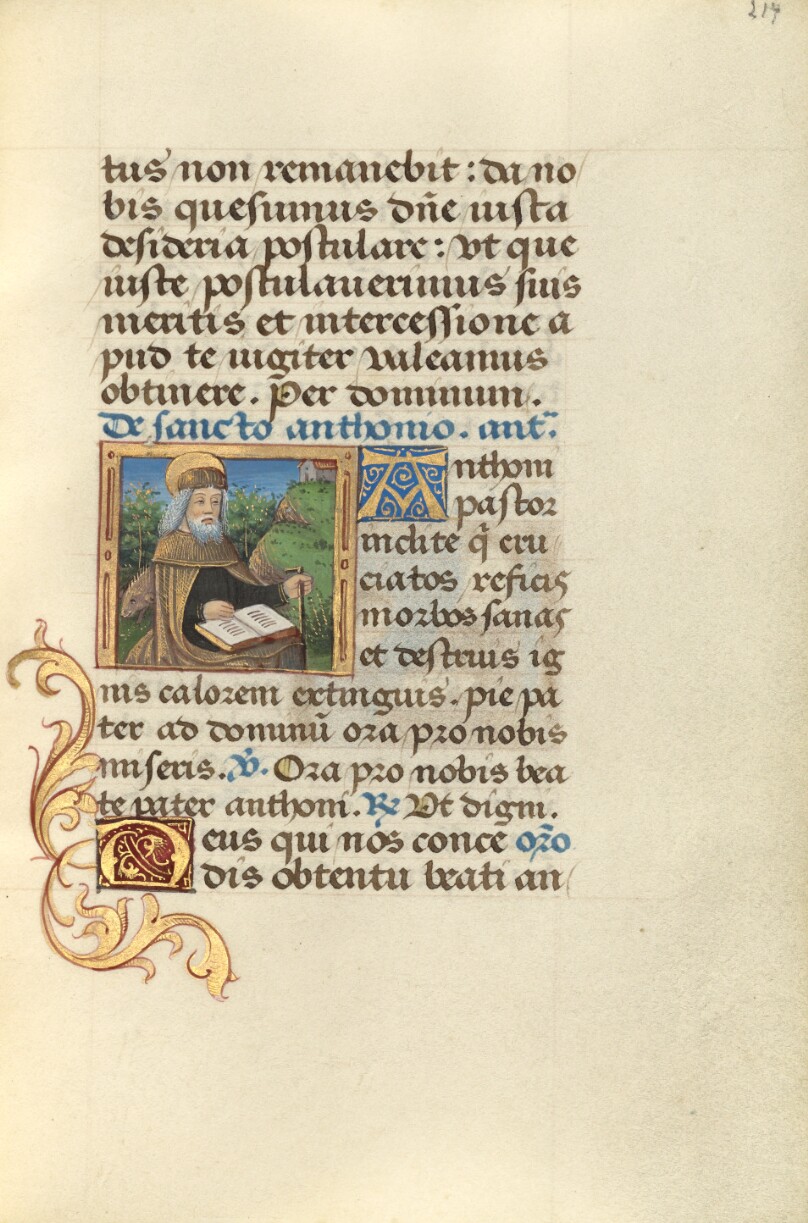 217
tus non remanebit : da no
bis quesumus dñe iusta
desideria postulare : vt que
iuste postulauerimus suis
meritis et intercessione a
pud te iugiter valeamus
obtinere. Per dominum.
De sancto anthonio. antᵃ.
Anthoni
pastor
inclite q̃ cru
ciatos reficis
morbos sanas
et destruis ig
nis calorem extinguis. pie pa
ter ad dominũ ora pro nobis
miseris. ℣. Ora pro nobis bea
te pater anthoni. ℟ Vt digni.
Deus qui nos conce orõ
dis obtentu beati an